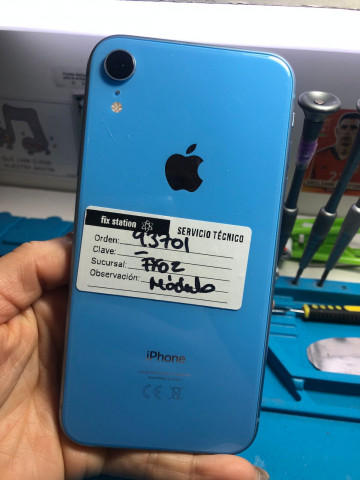 fix station SERVICIO TÉCNICO
Orden: 93701
Clave: –
Sucursal:
Observación: Módulo
iPhone